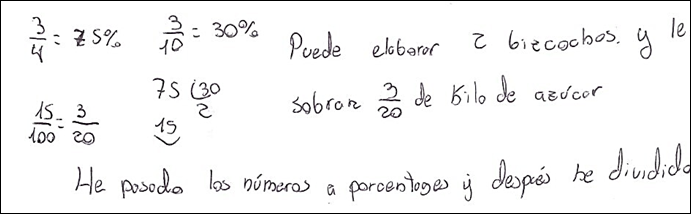 3/4 = 75%
3/10 = 30%
Puede elaborar 2 bizcochos. y le
75 | 30
15 2
sobran 3/20 de kilo de azúcar
15/100 = 3/20
He pasado los números a porcentages y después he dividido